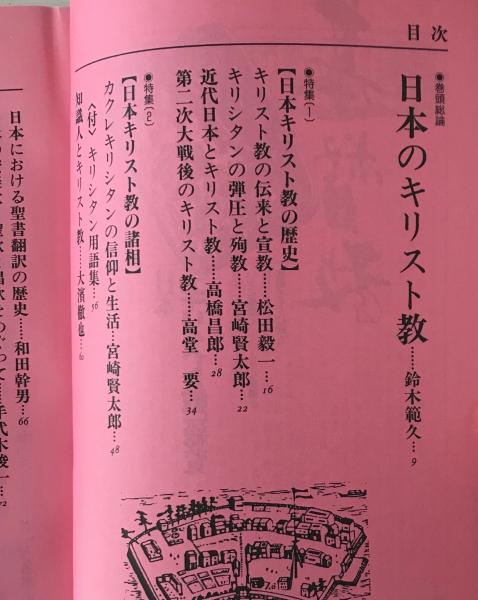 目次
●巻頭総論
日本のキリスト教……鈴木範久…9
●特集(1)
【日本キリスト教の歴史】
キリスト教の伝来と宣教……松田毅一…16
キリシタンの弾圧と殉教……宮崎賢太郎…22
近代日本とキリスト教……高橋昌郎…28
第二次大戦後のキリスト教……高堂 要…34
●特集(2)
【日本キリスト教の諸相】
カクレキリシタンの信仰と生活…宮崎賢太郎…48
〈付〉キリシタン用語集…56
知識人とキリスト教……大濱徹也…60
日本における聖書翻訳の歴史……和田幹男…66
手代木俊一…72